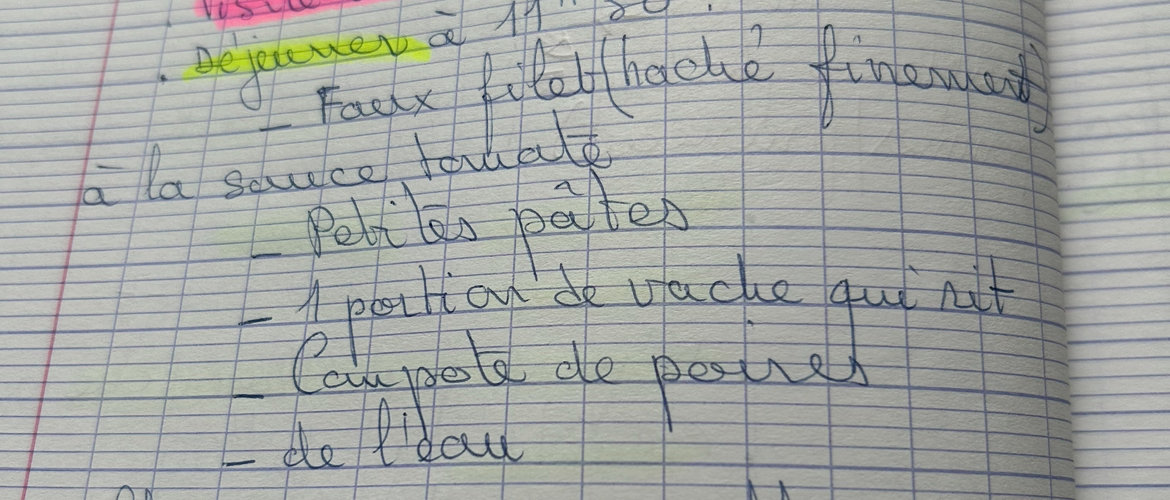 . Déjeuner à 11h30.
- Faux filet (haché finement)
à la sauce tomate
- Petites pâtes
- 1 portion de vache qui rit
- Compote de poires
- de l'eau